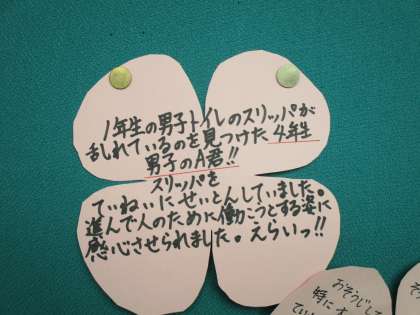 1年生の男子トイレのスリッパが
乱れているのを見つけた4年生
男子のA君!!
スリッパを
ていねいにせいとんしていました。
進んで人のために働こうとする姿に
感心させられました。えらいっ!!
おそうじして
特に